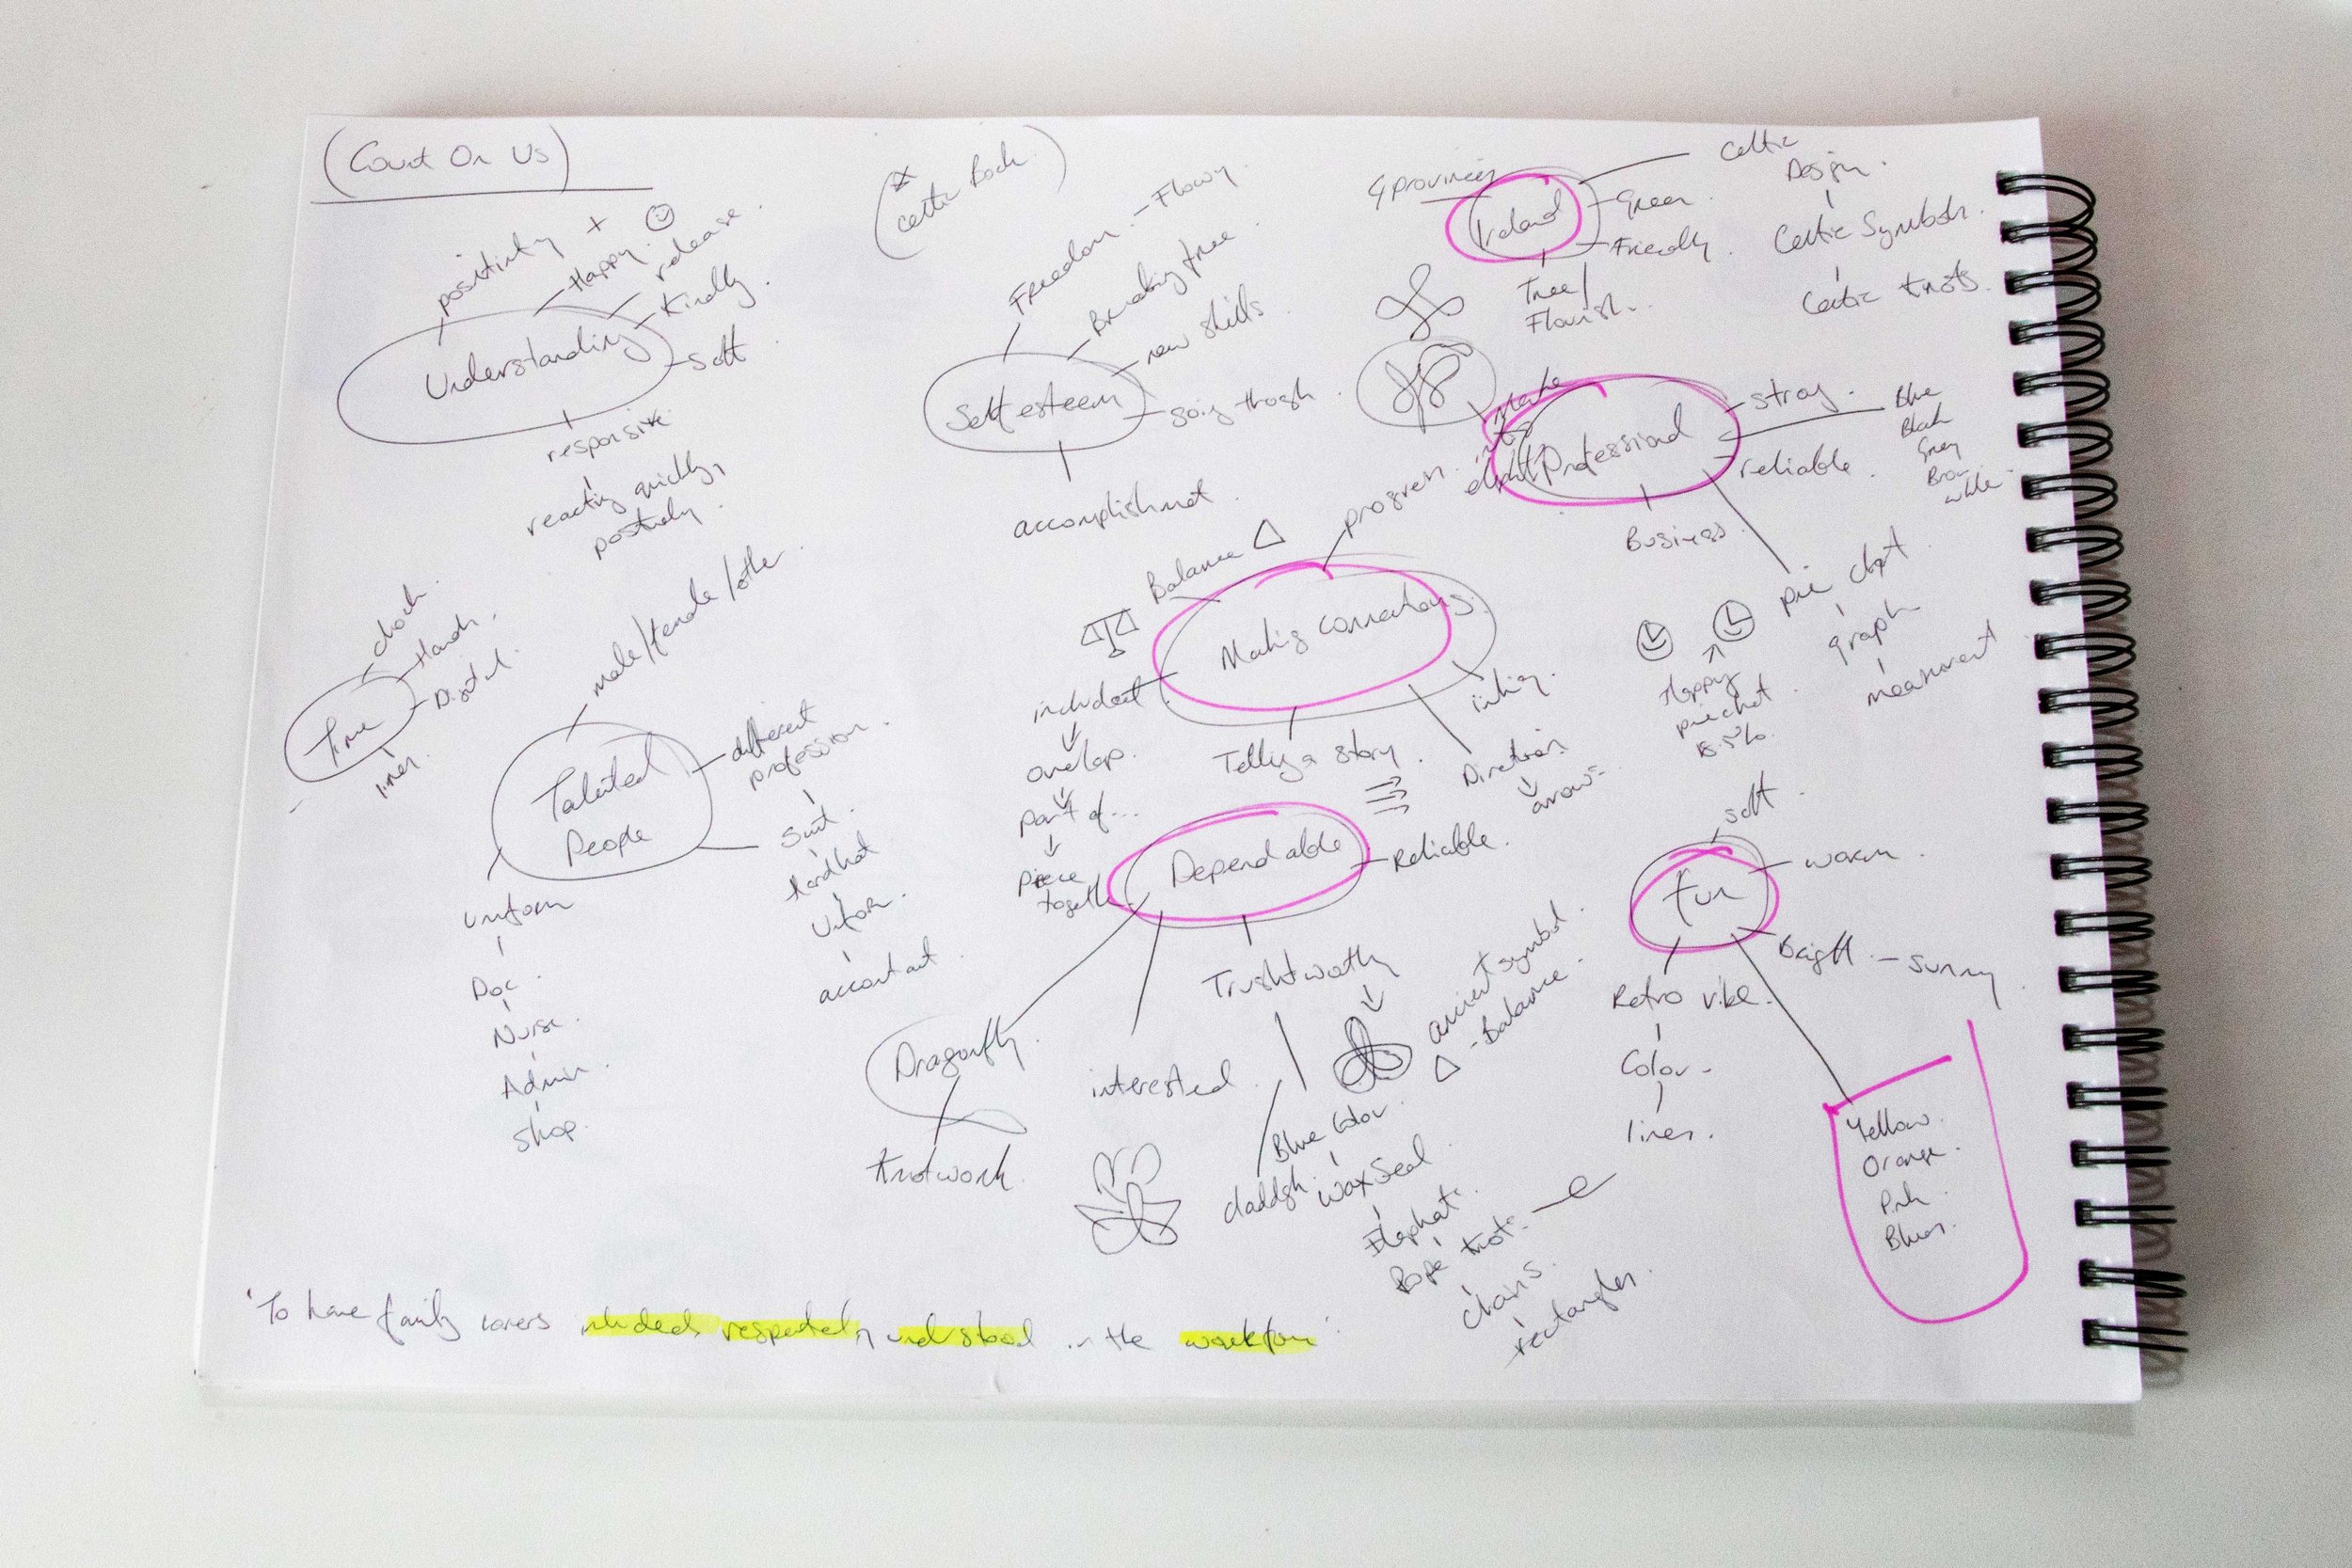 Count On Us
* Celtic Book
positivity +
Happy.
release.
Kindly.
Soft.
Understanding
responsive
reacting quickly,
positively.
Freedom - Flowy
Breaking free.
new skills.
going through.
Self esteem
accomplishment.
4 provinces
Ireland
Celtic
Design.
Celtic Symbols.
Celtic knots.
Green.
Friendly.
Tree/
Flourish.
make
into
Professional
strong.
reliable.
Blue
Black
Grey
Brown
white.
Business.
pie chart
graph
measurement
Happy
pie chart
Time
clock.
Hands.
Digital.
lines.
male/female/other.
Talented
People
different
profession.
Suit.
hardhat
Uniform.
accountant.
Uniform
Doc.
Nurse.
Admin.
Shop.
Balance
progress.
Making connections.
included
overlap.
part of...
piece
together.
Telling a story.
linking.
Direction.
arrows
Dependable
Reliable.
Trustworthy
interested.
Dragonfly.
Knotwork.
ancient symbol.
- Balance.
Blue Color.
claddagh.
Wax Seal.
Elephant.
Rope knots.
chains.
rectangles.
Fun
soft.
warm.
Bright. - Sunny
Retro vibe.
Color.
lines.
Yellow.
Orange.
Pink.
Blues.
'To have family carers included, respected, understood in the workforce'